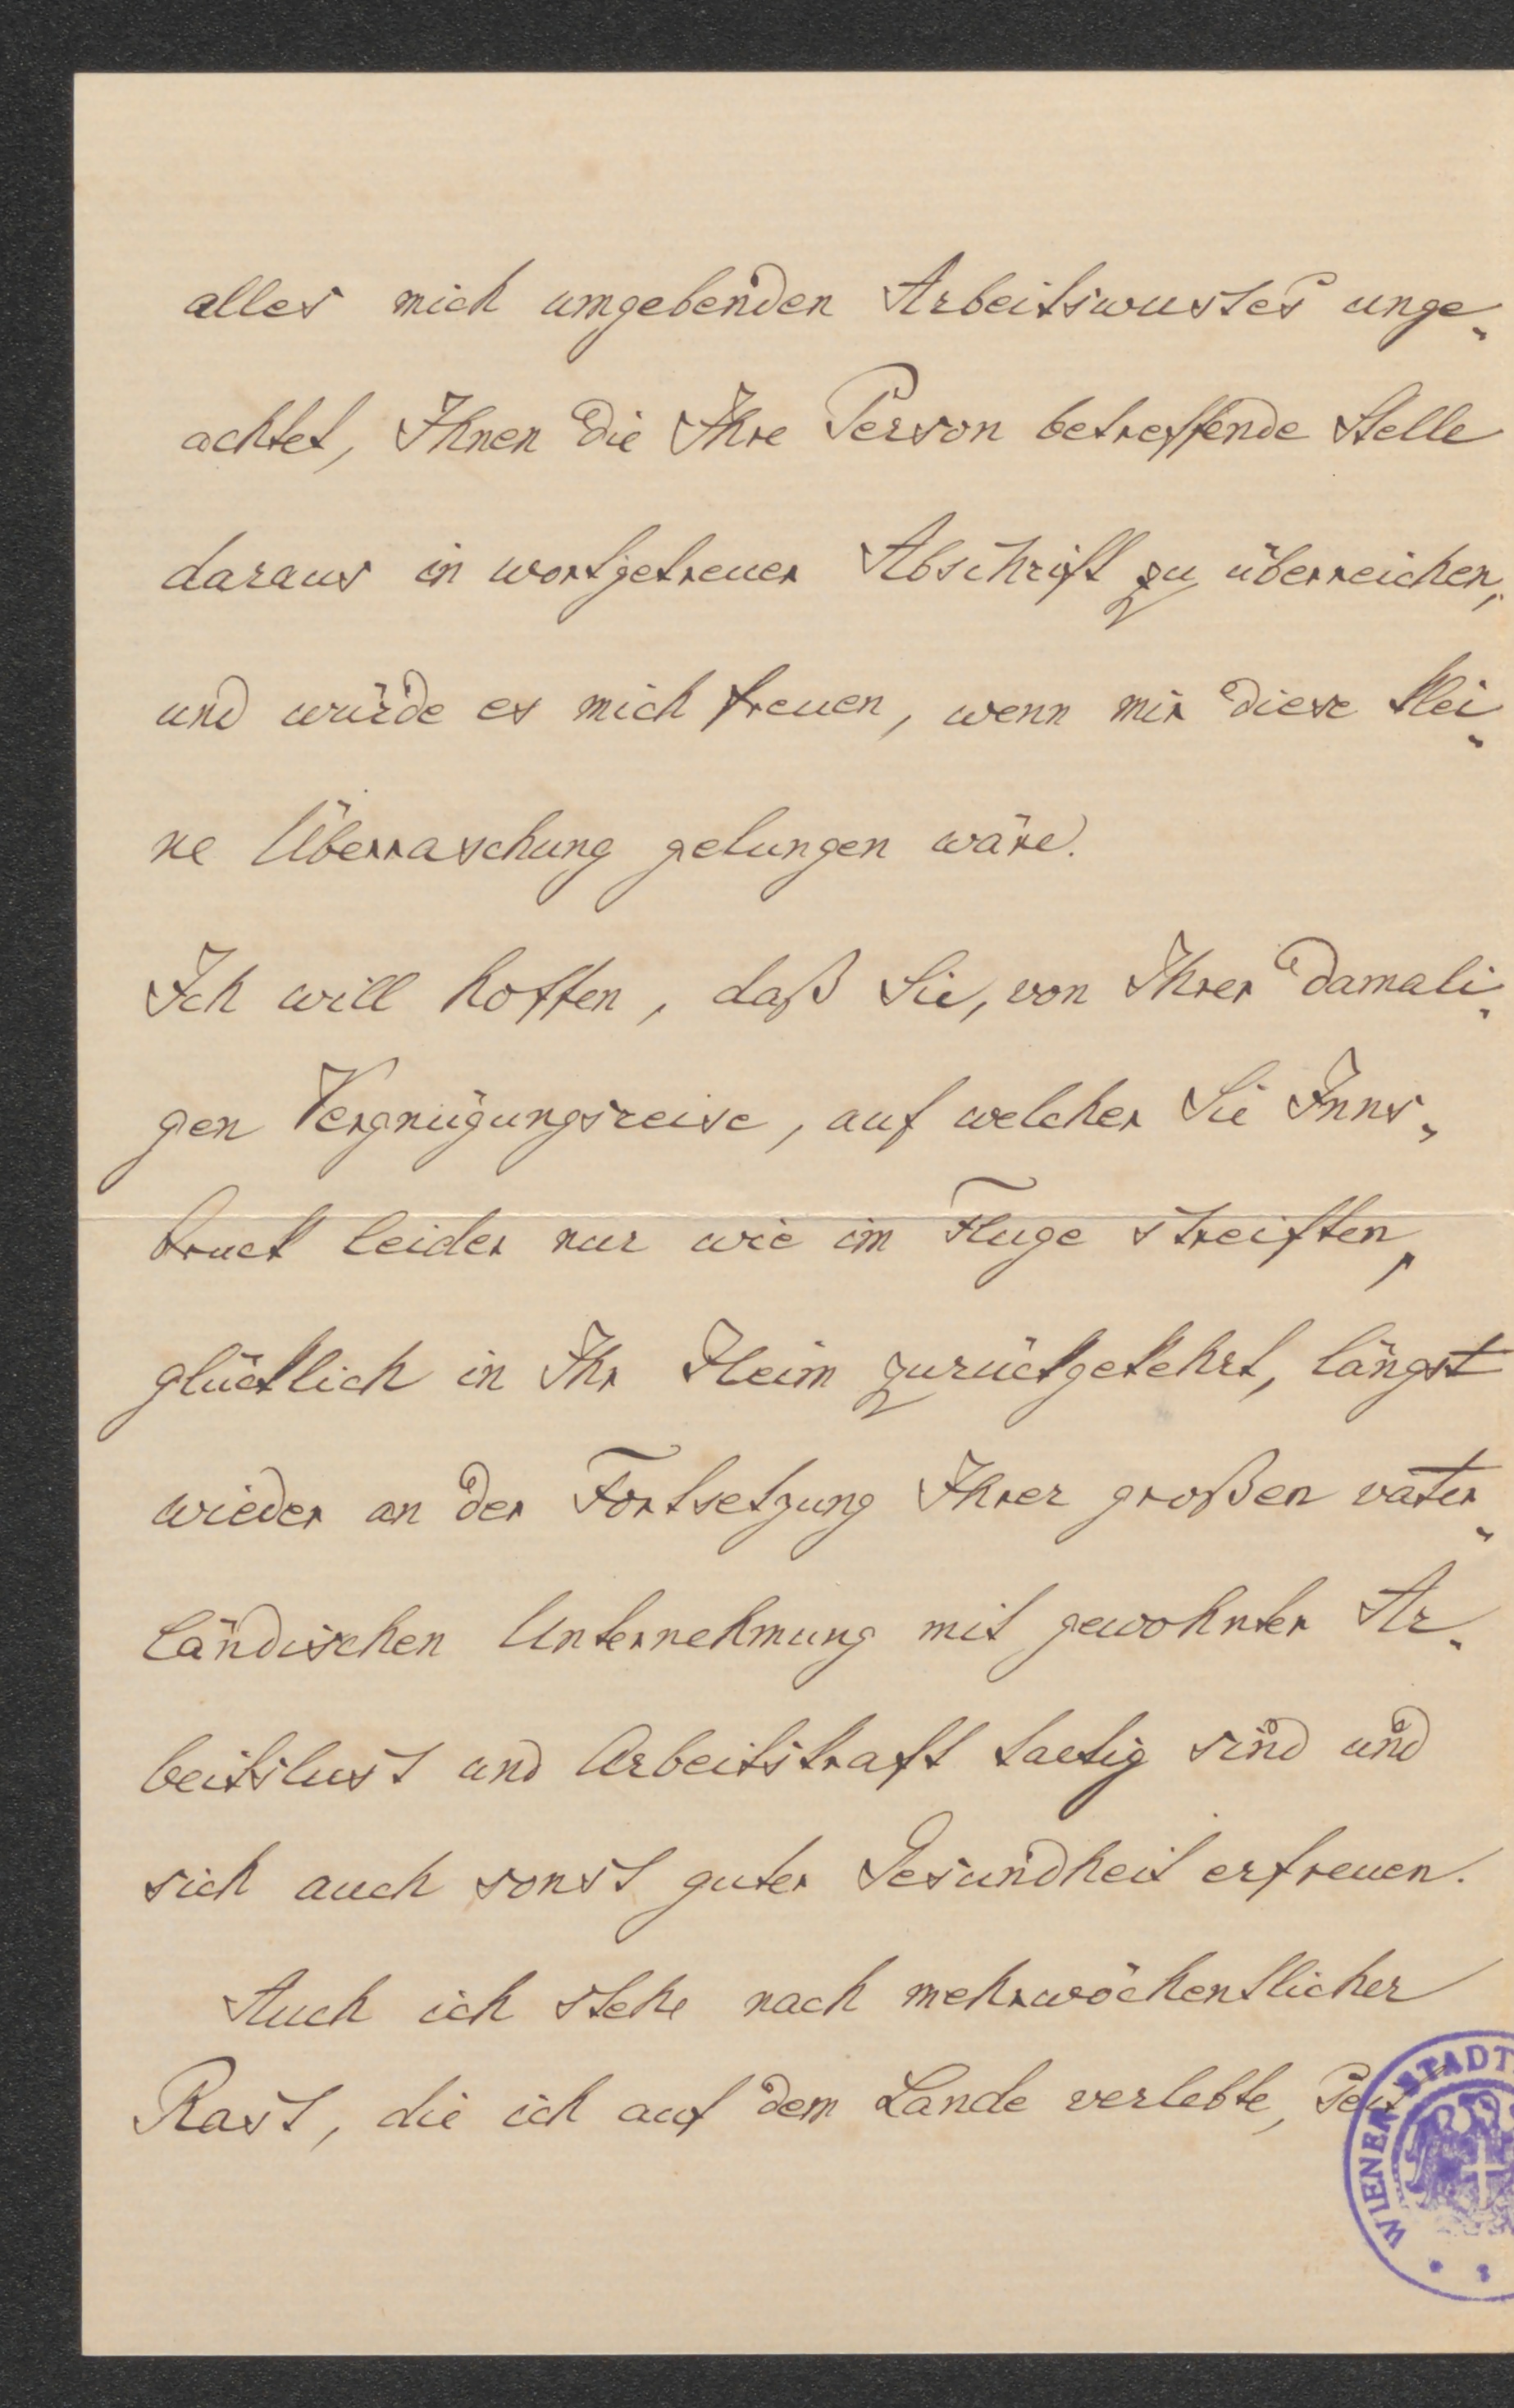 alles mich umgebenden Arbeitswustes unge-
achtet, Ihnen die Ihre Person betreffende Stelle
daraus in wortgetreuer Abschrift zu überreichen,
und würde es mich freuen, wenn mir diese klei-
ne Überraschung gelungen wäre.
Ich will hoffen, daß Sie, von Ihrer damali-
gen Vergnügungsreise, auf welcher Sie Inns-
bruck leider nur wie im Fluge streiften,
glücklich in Ihr Heim zurückgekehrt, längst
wieder an der Fortsetzung Ihrer großen vater-
ländischen Unternehmung mit gewohnter Ar-
beitslust und Arbeitskraft taetig sind und
sich auch sonst guter Gesundheit erfreuen.
Auch ich stehe nach mehrwöchentlicher
Rast, die ich auf dem Lande verlebte,
WIENER STADT